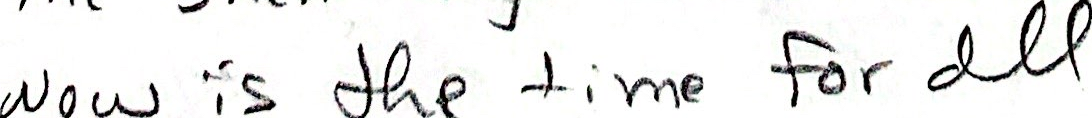 Now is the time for all